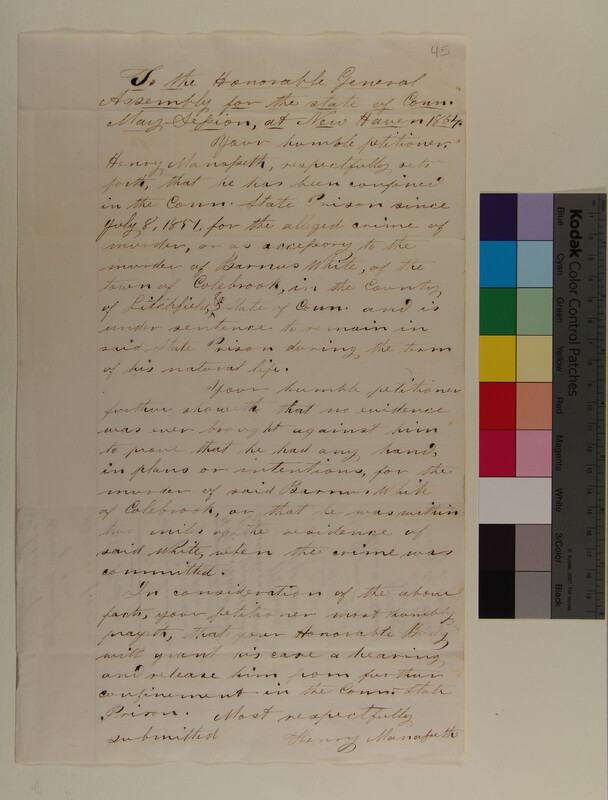 45
To the Honorable General
Assembly for the state of Conn.
May Session, at New Haven 1854.
Your humble petitioner,
Henry Manasseth, respectfully sets
forth, that he has been confined
in the Conn. State Prison since
July 8, 1851, for the alleged crime of
murder, or as accessory to the
murder of Barnus White, of the
town of Colebrook, in the County,
of Litchfield, & State of Conn. and is
under sentence to remain in
said State Prison during the term
of his natural life.
Your humble petitioner
further showeth that no evidence
was ever brought against him
to prove that he had any hand,
in plans or intentions, for the
murder of said Barnus White
of Colebrook, or that he was within
two miles of the residence of
said White, when the crime was
committed.
In consideration of the above
facts, your petitioner most humbly
prayeth, that your Honorable Body,
will grant his case a hearing,
and release him from further
confinement in the Conn. State
Prison. Most respectfully
submitted Henry Manasseth
Kodak Color Control Patches
Blue
Cyan
Green
Yellow
Red
Magenta
White
3/Color
Black